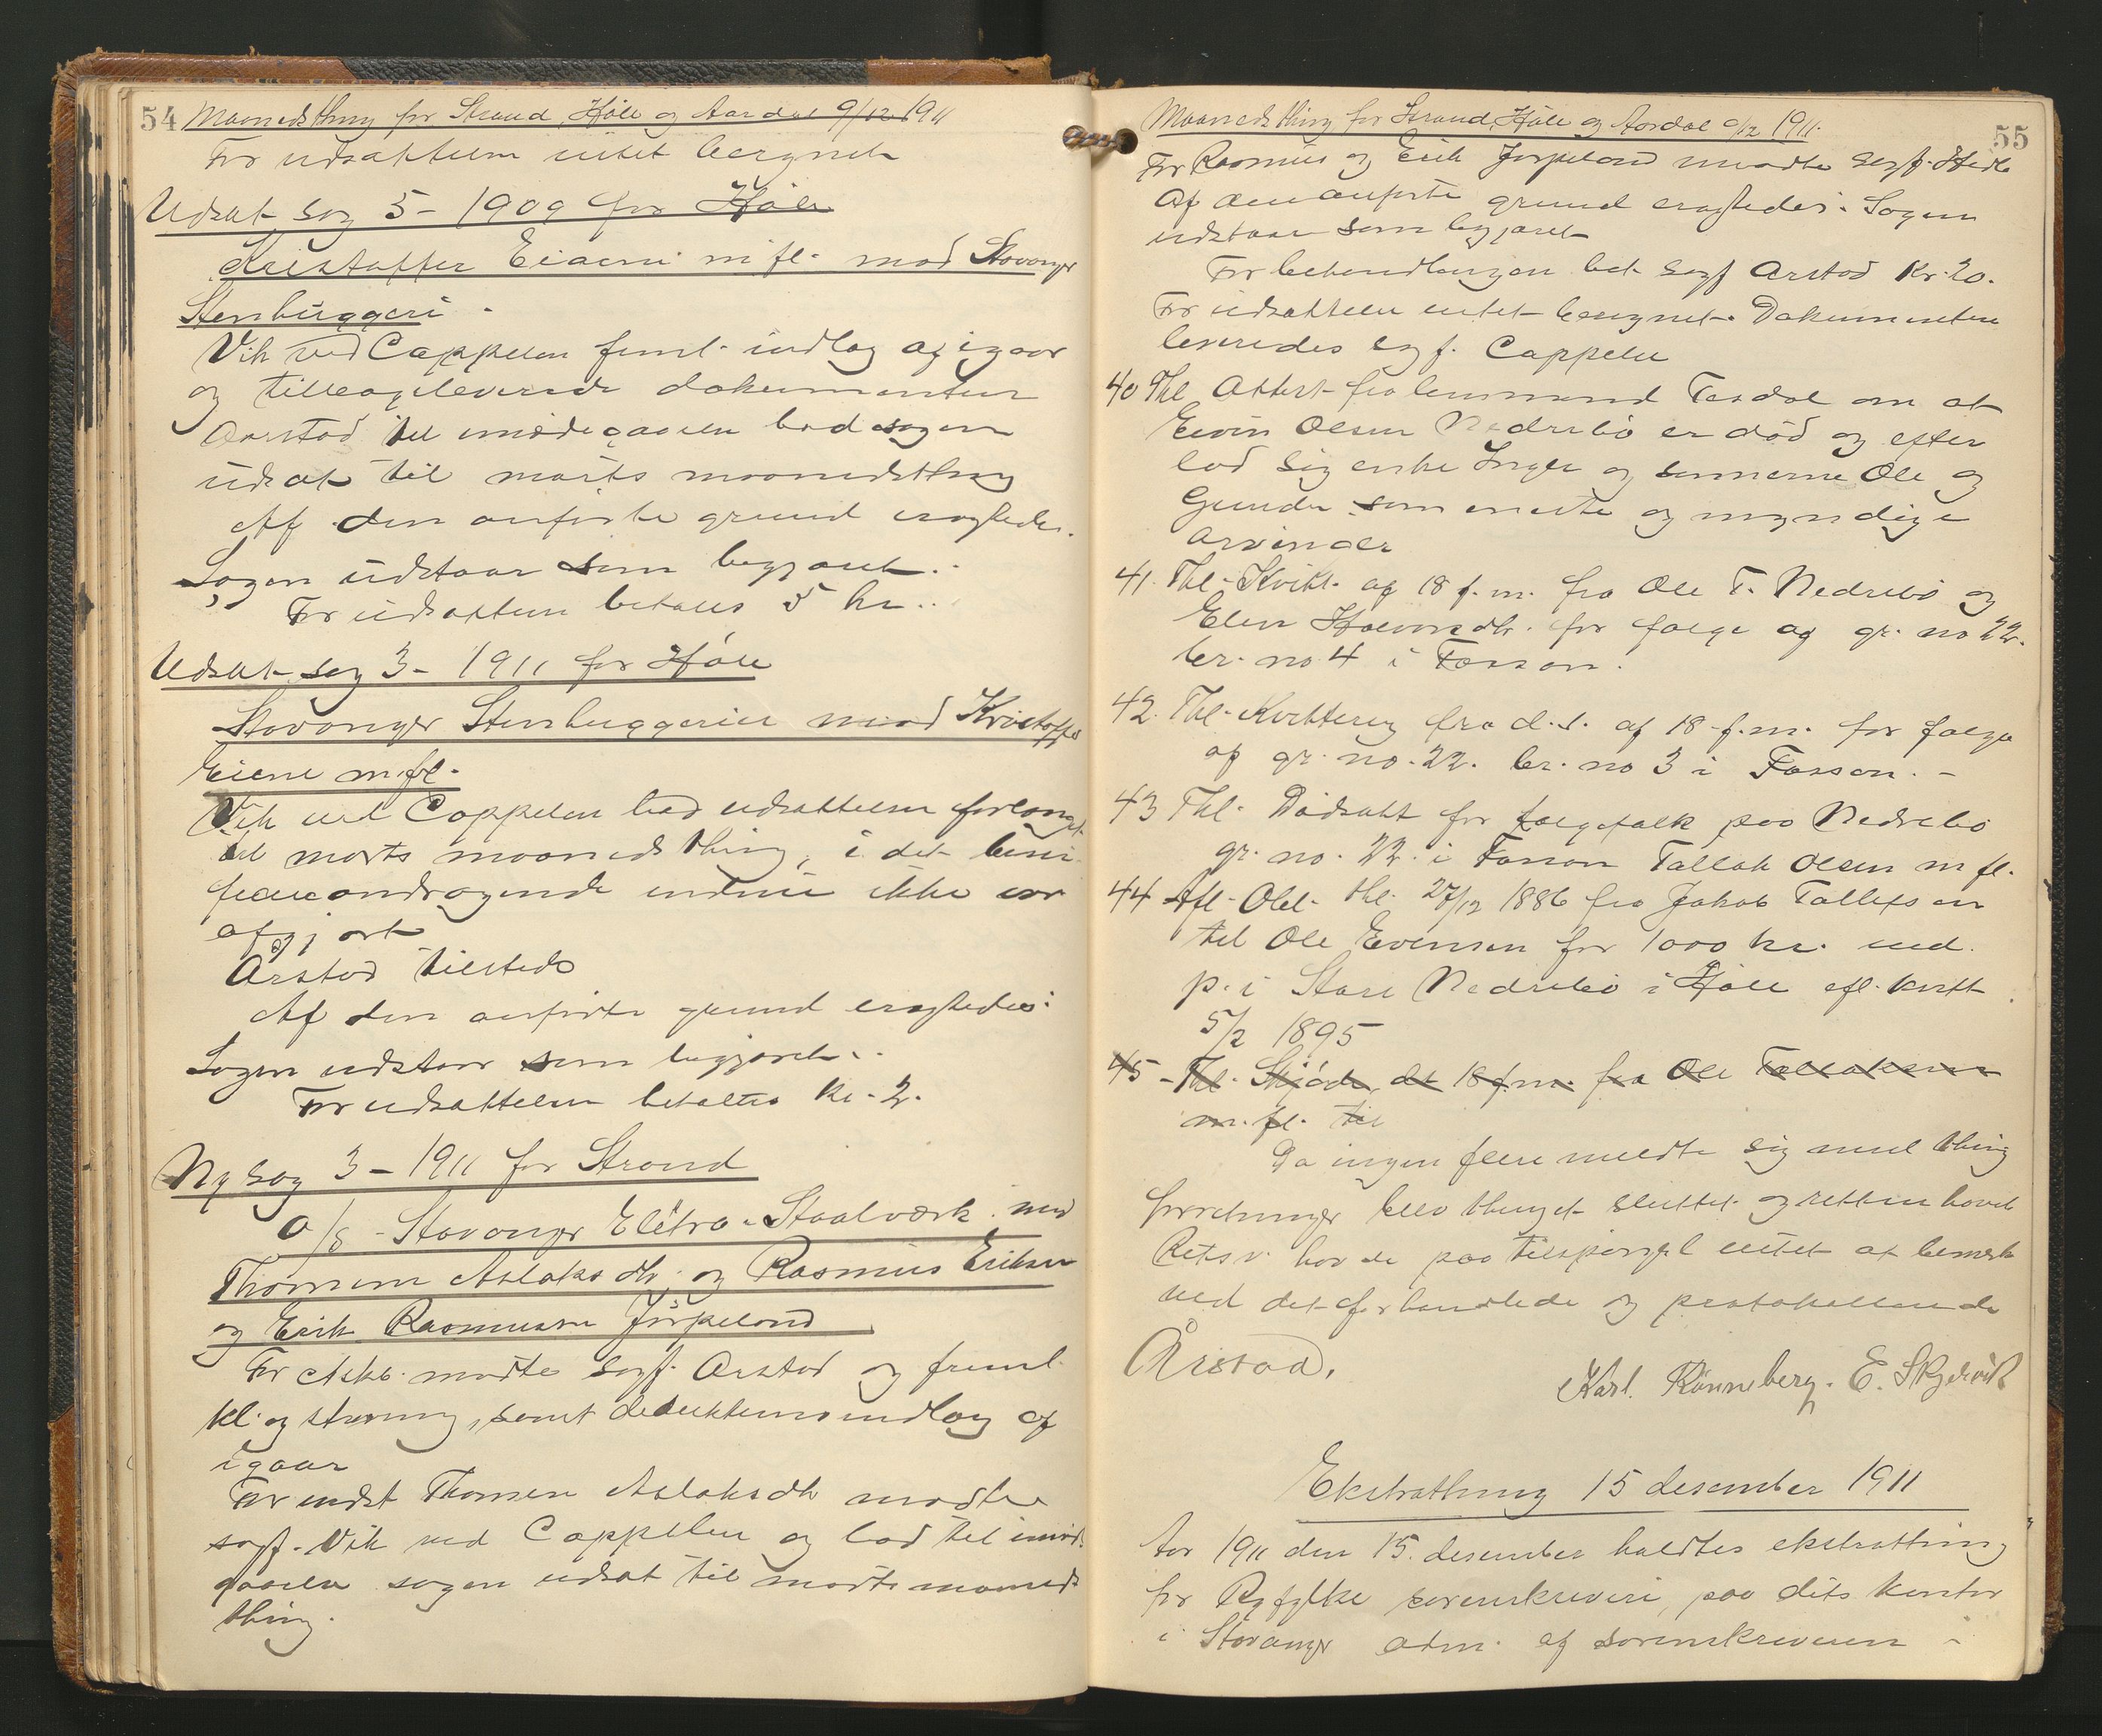 54 Maanedsthing for Strand, Høle og Aardal 9/12 1911
For udsættelsen intet beregnet
Udsat sag 5 - 1909 for Høle
Kristoffer Eiaene m fl. mod Stavanger
Stenhuggeri.
Vik ved Cappelen freml. indlæg af igaar
og tilbageleverede dokumenterne
Aarstad til imødegaaelse bad sagen
udsat til marts maanedsthing
Af den anførte grund eragtedes.
Sagen udstaar som begjæret.
For udsættelsen betales 5 kr.
Udsat sag 3 - 1911 for Høle
Stavanger Stenhuggerier mod Kristoffer
Eiene m. fl.
Vik ved Cappelen bad udsættelsen forlænget
til marts maanedsthing, i det beni-
ficieandragende endnu ikke var
afgjort
Arstad tilstede
Af den anførte grund eragtedes:
Sagen udstaar som begjæret.
For udsættelsen betaltes kr. 2.
Ny sag 3 - 1911 for Strand
A/S - Stavanger Elektro-Staalværk mod
Thomine Aslaksdtr. og Rasmus Eriksen
og Erik Rasmussen Jørpeland
For citks. mødte sagf. Arstad og freml.
kl. og stævning, samt deduktionsindlæg af
igaar
For indst Thomine Aslaksdtr mødte
sagf. Vik ved Cappelen og bad til imøde-
gaaelse sagen udsat til marts maaneds
thing.
Maanedsthing for Strand, Høle og Aardal 9/12 1911.
55
For Rasmus og Erik Jørpeland mødte sagf. Hedle
Af den anførte grund eragtedes: Sagen
udstaar som begjæret
For behandlingen bet. sagf Arstad Kr. 20.
For udsættelsen intet beregnet. Dokumenterne
leveredes sagf. Cappelen
40 Thl Attest fra lensmand Tesdal om at
Eivin Olsen Nedrebø er død og efter
lod sig enke Inger og sønnerne Ole og
Gunder som eneste og myndige
arvinger
41. Thl. Kvitt. af 18 f. m. fra Ole T. Nedrebø og
Elen Halvorsdtr. for følge af gr. no 22.
br. no 4 i Fossan.
42. Thl. Kvittering fra d. s. af 18 f. m. for følge
af gr. no. 22. br. no 3 i Fossan. -
43 Thl. Dødsatt for følgefolk paa Nedrebø
gr. no. 22. i Fossan Tallak Olsen m fl.
44 Afl. Obl. thl. 27/12 1886 fra Jakob Tollefsen
til Ole Evensen for 1000 kr. med
p. i Store Nedrebø i Høle efl. kvitt
5/2 1895
45 - Thl. Skjøde, dt 18 f. m. fra Ole Tallaksen
m. fl. til
Da ingen flere meldte sig med thing
forretninger blev thinget sluttet og retten hævet
Retsv. havde paa tilspørgsel intet at bemærke
ved det forhandlede og protokollerede
Årstad.
Karl Rønneberg. E. Skjervik
Ekstrathing 15 desember 1911
Aar 1911 den 15. desember holdtes ekstrathing
for Ryfylke sorenskriveri, paa dets kontor
i Stavanger adm. af sorenskriveren -